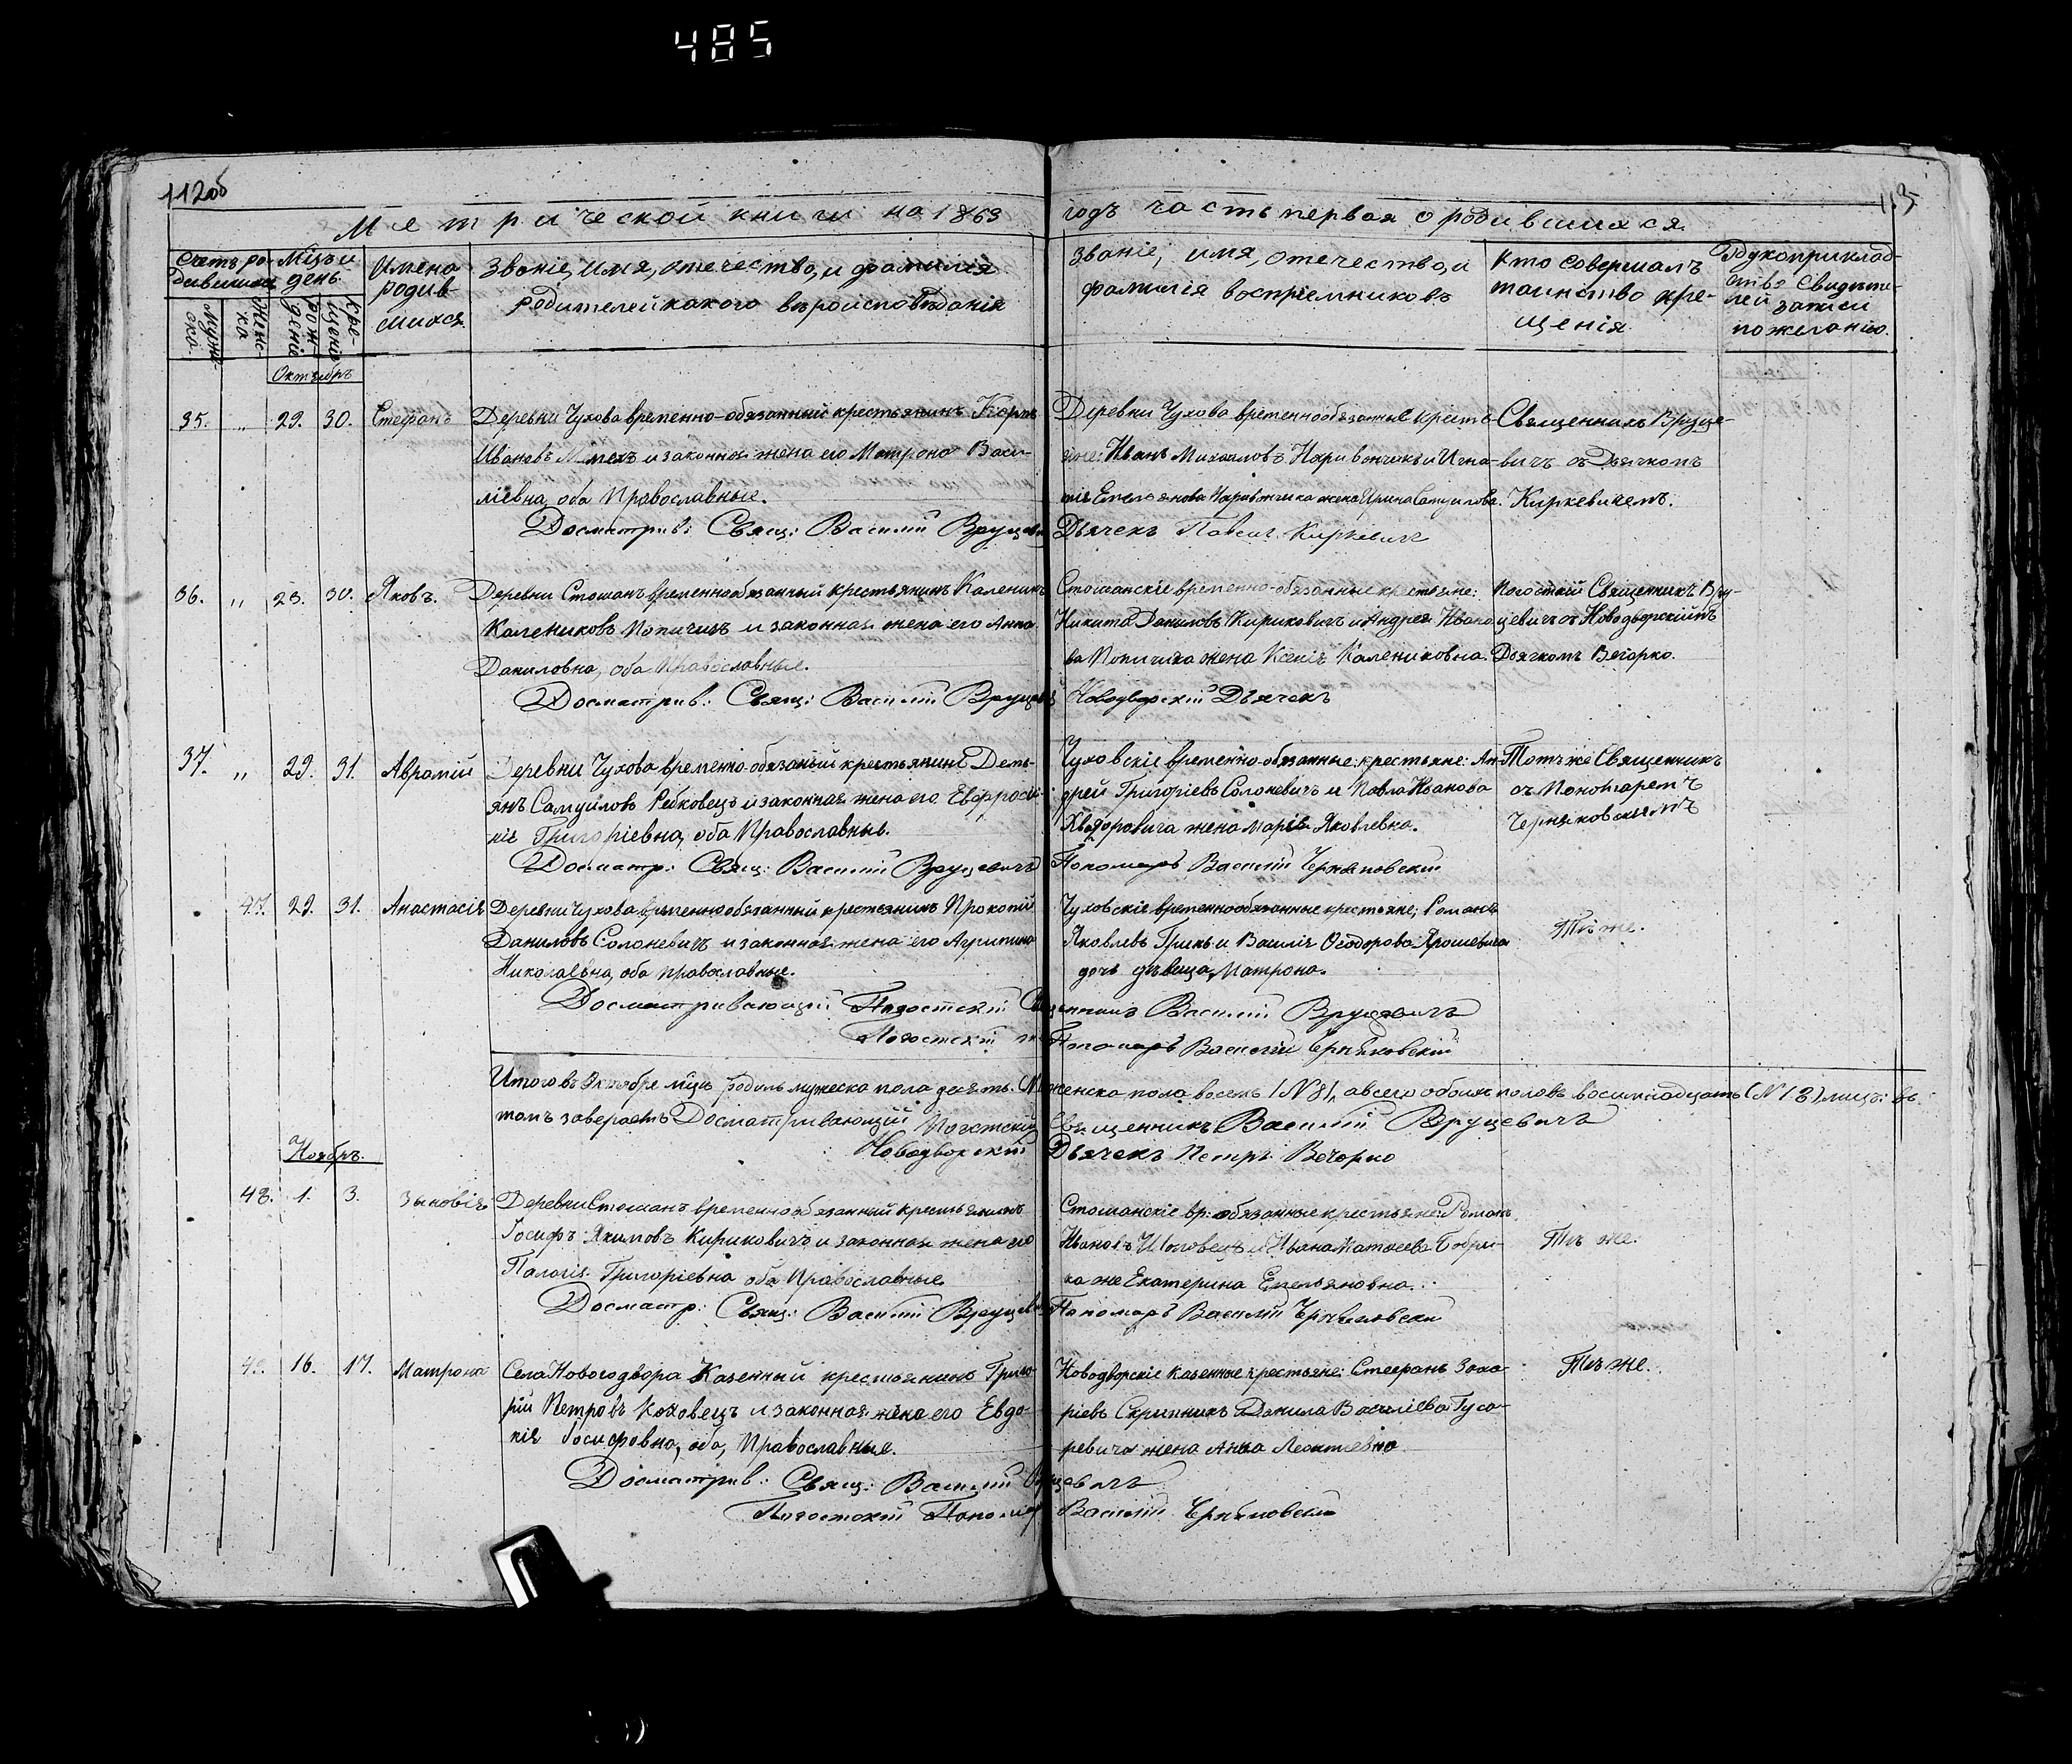 485
112об
113
Метрической книги на 1869 годъ часть первая о родившихся.
Счетъ родившихся
Мѣсъ и день.
Имена родившихся.
Званіе, имя, отечество, и фамилія родителей какого вѣроисповѣданія
Званіе, имя, отечество, и фамилія воспріемниковъ
Кто совершалъ таинство крещенія.
Рукоприкладство свидѣтелей записи по желанію.
Мужеска. Женска
рожденія крещенія
Октябрь
35. „ 29. 30. Стефанъ
Деревни Чухова временно-обязанный крестьянинъ
Ивановъ и законная жена его Матрона Васи-
ліевна, оба Православные.
Досматрив: Свящ: Василій Вруцевичъ
Деревни Чухова временнообязанные кресть-
яне: Иванъ Михаиловъ и Игна-
тія Емельянова жена Ирина Самуилова.
Дьячекъ Павелъ Киркевичъ
Священникъ Вруце-
вичъ съ Дьячкомъ
Киркевичемъ.
36. „ 23. 30. Яковъ.
Деревни Стошанъ временнообязанный крестьянинъ Каленикъ
Калениковъ Попичицъ и законная жена его Анна
Даниловна, оба Православные.
Досматрив: Свящ: Василій Вруцевичъ
Стошанскіе временно-обязанные крестьяне:
Никита Даниловъ Кириковичъ и Андрея Ивано
ва жена Ксенія Калениковна.
Новодворскій Дьячекъ
Погосткій Священникъ Вру-
цевичъ съ Новодворскимъ
Дьячкомъ Вечорко.
37. „ 29. 31. Аврамій
Деревни Чухова временно-обязаный крестьянинъ Демь-
янъ Самуиловъ Ребковецъ и законная жена его Евфроси-
нія Григоріевна, оба Православные.
Досматр: Свящ: Василій Вруцевичъ
Чуховскіе временно-обязанные крестьяне: Ан-
дрей Григоріевъ Солоневичъ и Павла Иванова
жена Марія Яковлевна.
Пономарь Василій Черняковскій
Тотъ же Священникъ
съ Пономаремъ
Черняковскимъ
47. 29. 31. Анастасія
Деревни Чухова временнообязанный крестьянинъ Прокопій
Даниловъ Солоневичъ и законная жена его Агрипина
Николаевна, оба православные.
Досматривающій Погостскій Священникъ Василій Вруцевичъ
Погостскій Пономарь Василій Черняковскій
Чуховскіе временнообязанные крестьяне; Романъ
Яковлевъ Грикъ и Василія Ѳеодорова Ярошевича
дочь дѣвица, Матрона.
Тѣ же.
Итого въ Октябрѣ мѣцѣ родилъ мужеска пола десять. женска пола восемь (№ 8), а всего обоихъ половъ восимнадцать (№ 18) лицъ: въ
томъ заверяетъ Досматривающій Погостскій Священникъ Василій Вруцевичъ
Новодворскій Дьячекъ Петръ Вечорко
Ноябрь.
48. 1. 3. Зиновія
Деревни Стошанъ временнообязанный крестьянинъ
Іосифъ Якимовъ Кириковичъ и законная жена его
Палагія Григоріевна оба Православные.
Досматр: Свящ: Василій Вруцевичъ
Стошанскіе вр: обязанные крестьяне: Романъ
Ивановъ и Ивана Матвеева Бобри-
ка жена Екатерина Емельяновна.
Пономарь Василій Черняковскій
Тѣ же.
49. 16. 17. Матрона
Села Новогодвора Казенный крестьянинъ Григо-
рій Петровъ Коховецъ и законная жена его Евдо-
кія Іосифовна, оба, Православные.
Досматрив: Свящ: Василій Вруцевичъ
Погостскій Пономарь Василій Черняковскій
Новодворскіе казенные крестьяне: Стефанъ Заха-
ріевъ Скрипникъ Данила Василіева Гуса-
ревича жена Анна Леонтіевна
Тѣ же.